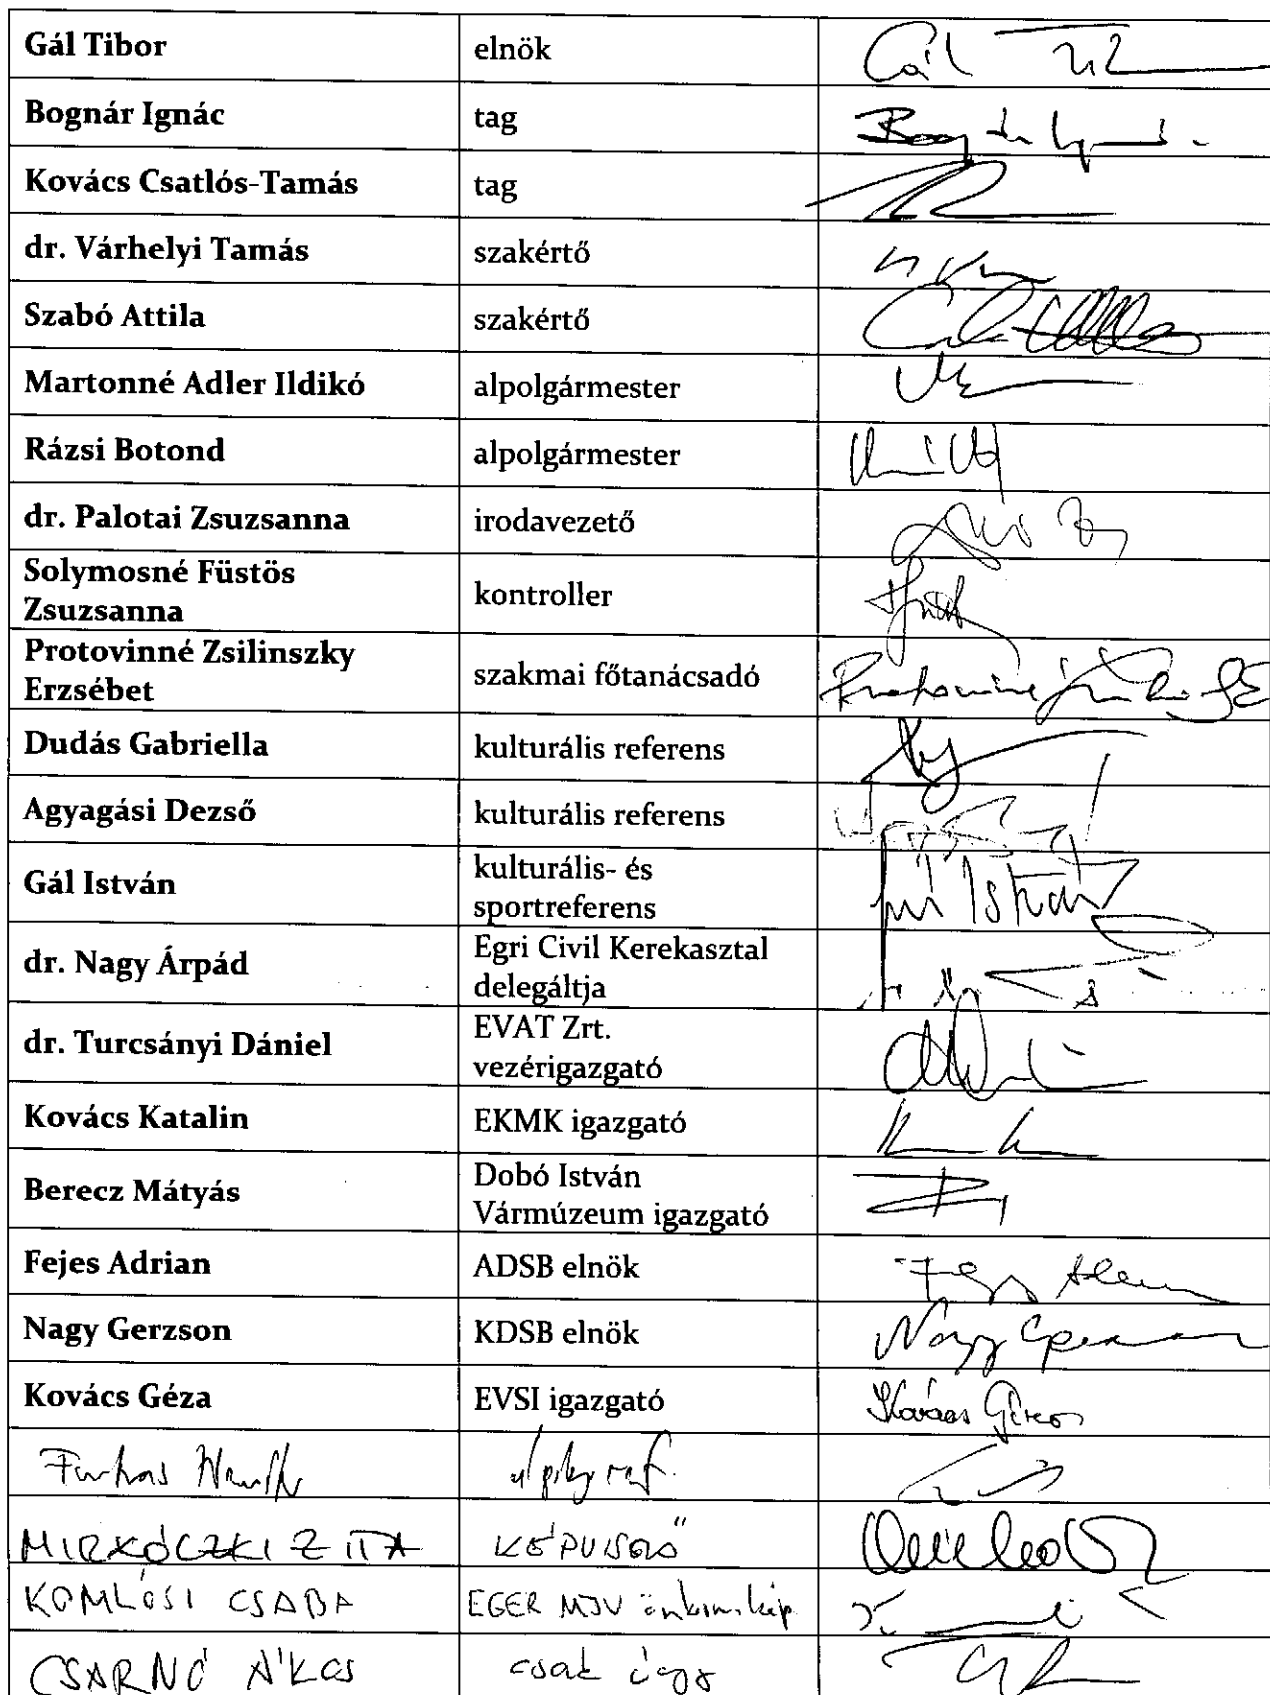 Gál Tibor elnök Gál Tib
Bognár Ignác tag
Kovács Csatlós-Tamás tag
dr. Várhelyi Tamás szakértő
Szabó Attila szakértő
Martonné Adler Ildikó alpolgármester
Rázsi Botond alpolgármester
dr. Palotai Zsuzsanna irodavezető
Solymosné Füstös
Zsuzsanna
kontroller
Protovinné Zsilinszky
Erzsébet
szakmai főtanácsadó
Dudás Gabriella kulturális referens
Agyagási Dezső kulturális referens
Gál István
kulturális- és
sportreferens
István
dr. Nagy Árpád
Egri Civil Kerekasztal
delegáltja
dr. Turcsányi Dániel
EVAT Zrt.
vezérigazgató
Kovács Katalin EKMK igazgató
Berecz Mátyás
Dobó István
Vármúzeum igazgató
Fejes Adrian ADSB elnök
Nagy Gerzson KDSB elnök Nagy
Kovács Géza EVSI igazgató Kovács Géza
Farkas
MIRKÓCZKI ZITA KÉPVISELŐ
KOMLÓSI CSABA EGER MJV önkorm. kép
CSARNÓ ÁKOS csak úgy